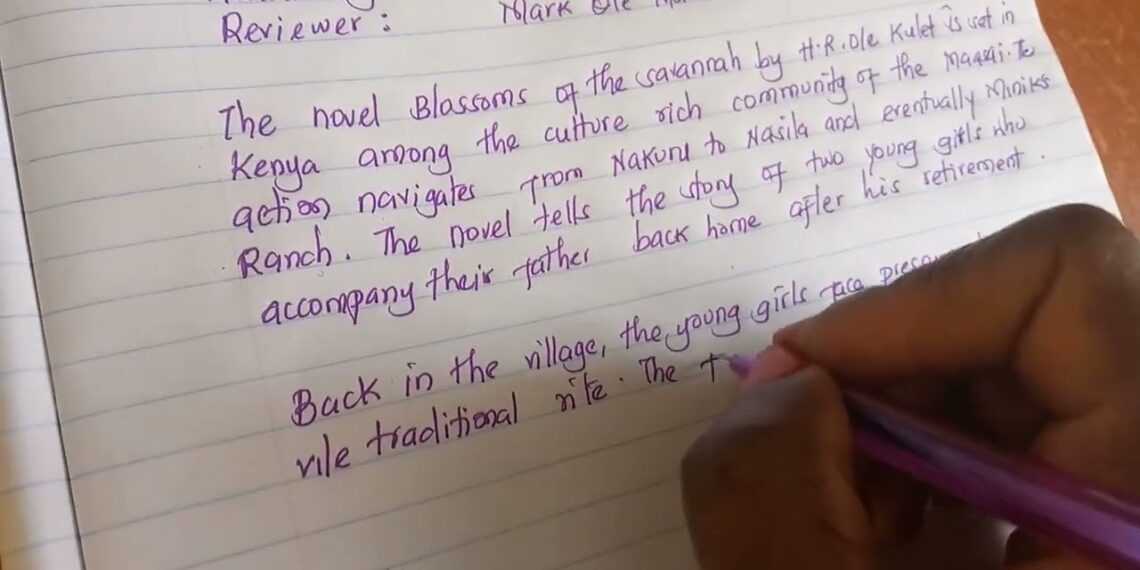 Reviewer : Mark Ole
The novel Blossoms of the savannah by H.R.Ole Kulet is set in
Kenya among the culture rich community of the Maasai. Te
action navigates from Nakuru to Nasila and eventually Miniks
Ranch. The novel tells the story of two young girls who
accompany their father back home after his retirement.
Back in the village, the young girls face
vile traditional rite. The